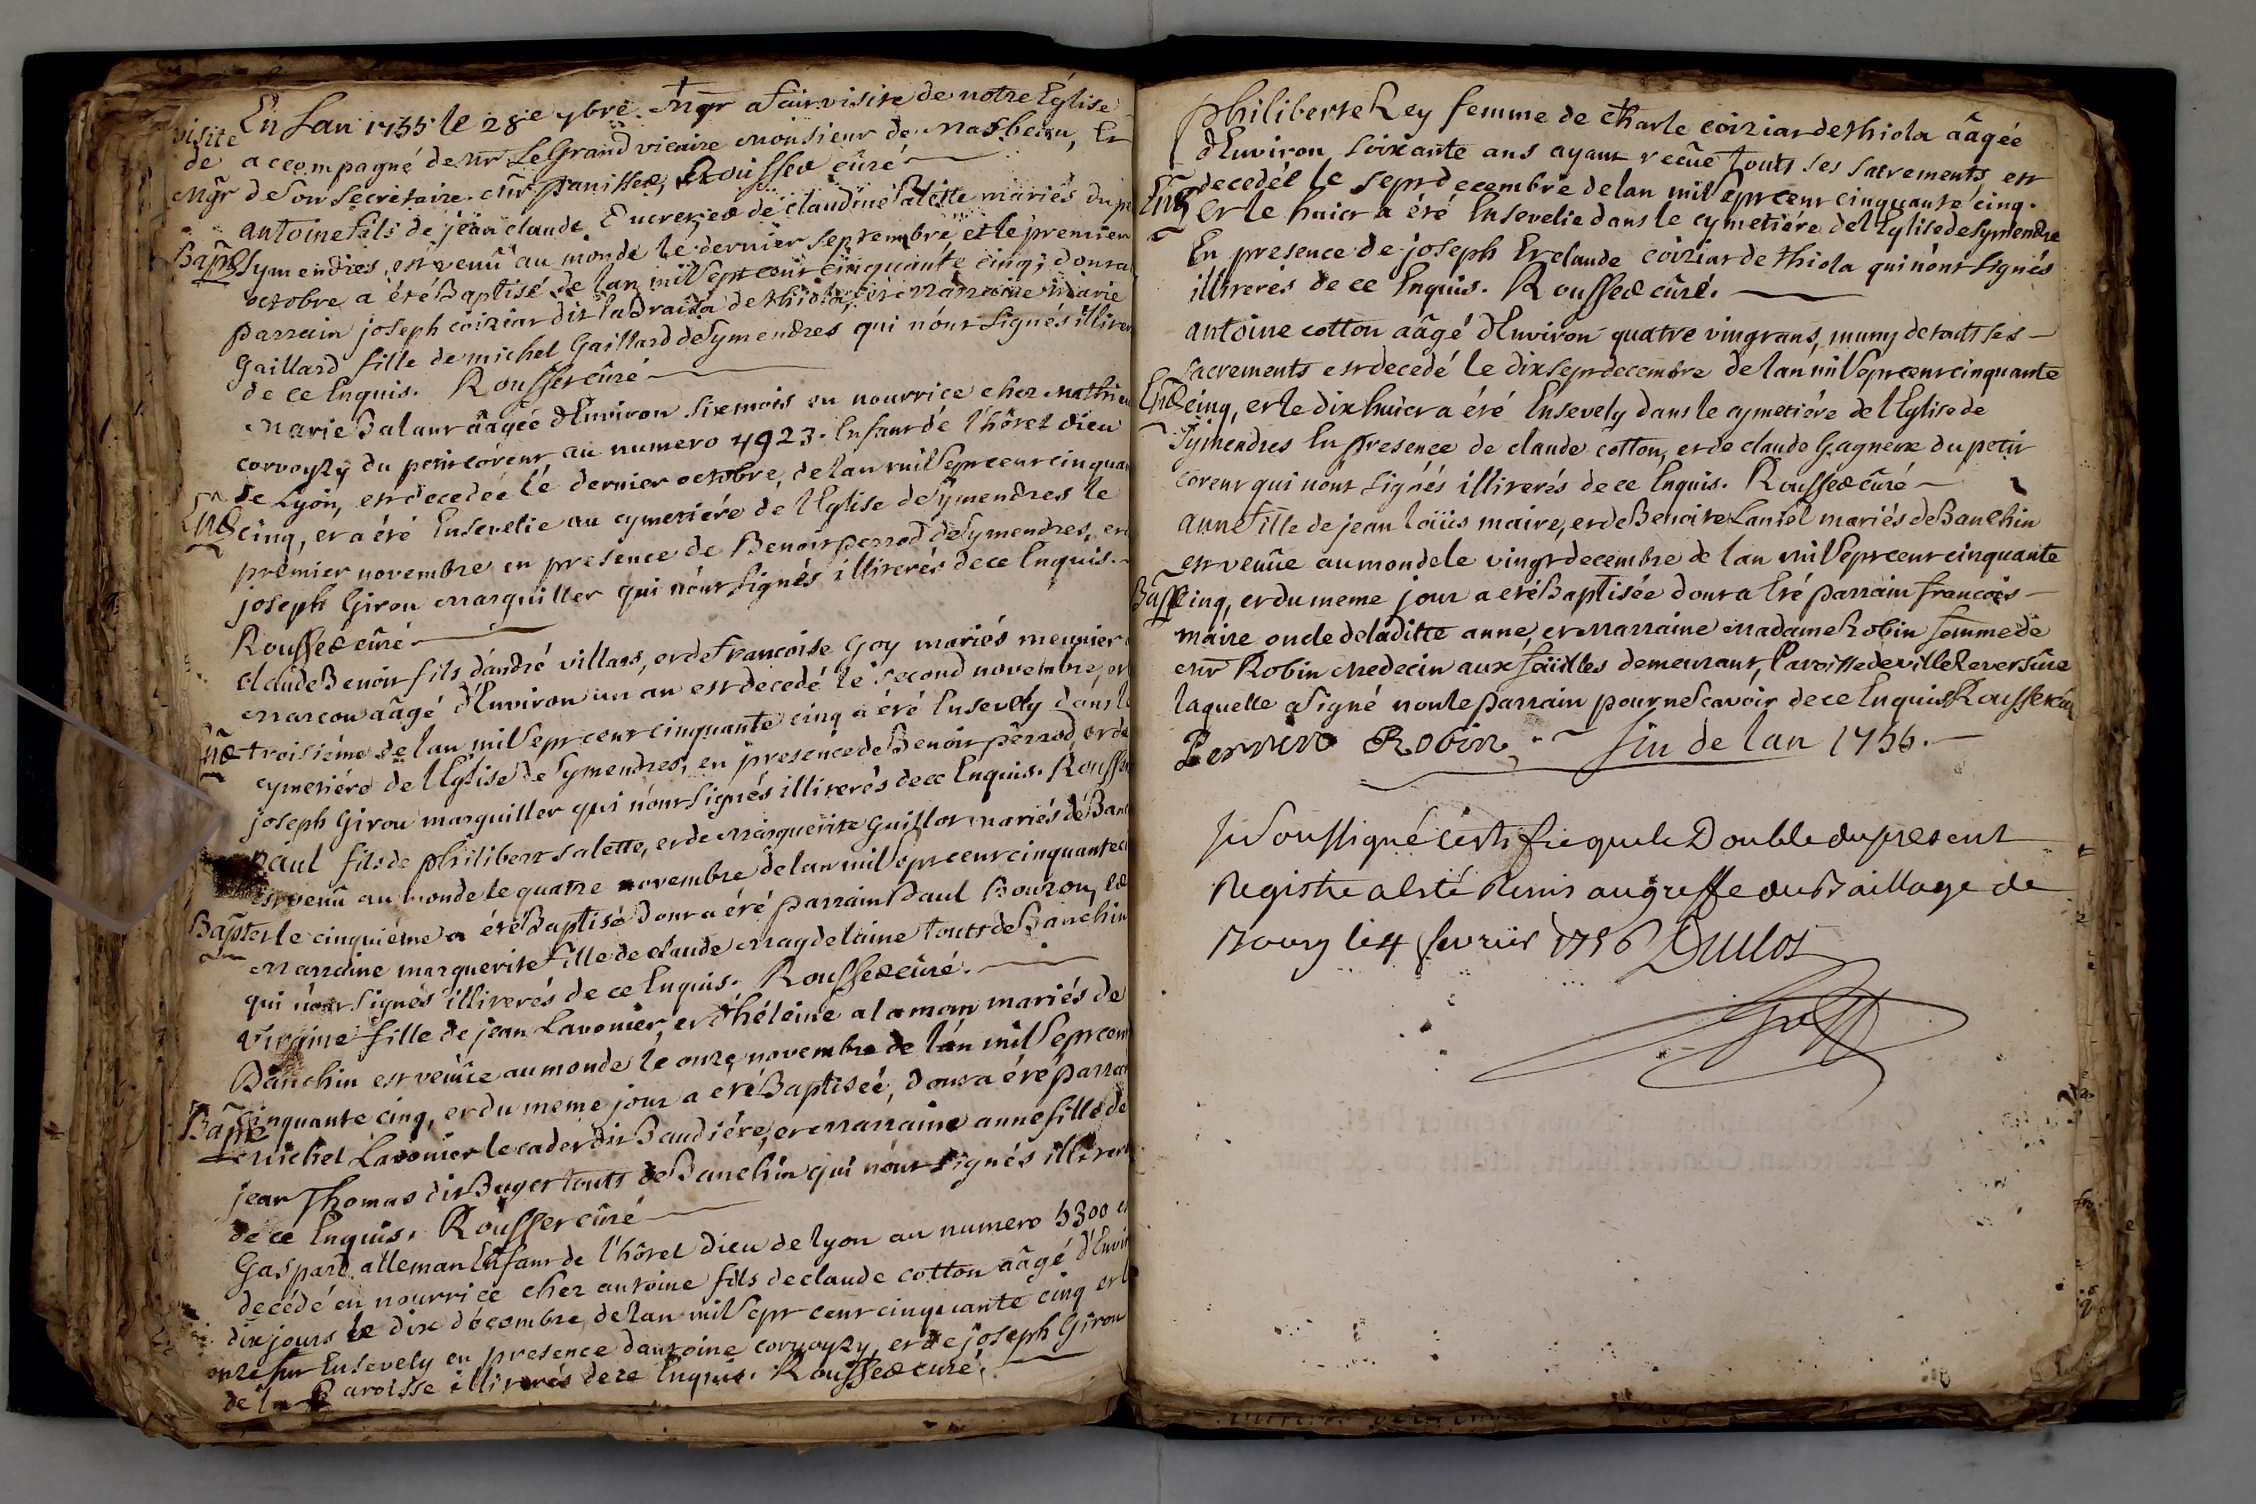 En Lan 1755 le 28e 7bre Mgr a fait visite de notre Église
visite
de accompagné de Mr Le Grand vicaire monsieur de Et
Mgr de son secretaire Mr panisset, Rousset curé
antoine fils de jean claude de claudine Salette mariés du
Bapt Symendres, est venu au monde le dernier septembre et le premier
octobre a été Baptisé de lan mil sept cent cinquante cinq; dont a
parrain joseph coiziar dit la draisa de thiola, et marraine marie
Gaillard fille de michel Gaillard de Symendres qui nont signés
de ce Enquis. Rousset curé
Marie Balant âagée dEnviron six mois en nourrice chez mathieu
corvoyzy du petit corent au numero 4923. Enfant dé l'hôtel dieu
de Lyon, est decedée lé dernier octobre, de lan mil sept cent
Ense cinq, et a été Ensevelie au cymetiére dé lEglise de Symendres le
prémier novembre en presence de Benoit perrod de Symendres, et
joseph Girou marguillier qui nont signés illiterés de ce Enquis.
Rousset curé
claude Benoit fils dandré villars, et de francoise Goy mariés meunier
marcou aâgé dEnviron un an est decedé le second novembre, et
Ense troisiéme de lan mil sept cent cinquante cinq a été Ensevely dans
cymetiére de lEglise de Symendres, en presence de Benoit perrod, et de
joseph Girou marguiller qui nont signés illiterés de ce Enquis.
paul fils de philibert salette, et de marguerite Guillot mariés de
est venû au monde le quatre novembre de lan mil sept cent cinquante
Bapt et le cinquiéme a été Baptisé dont a été parrain Paul Bouzon,
marraine marguerite fille de claude magdelaine touts de Banchin
qui nont signés illiterés de ce Enquis. Rousset curé.
virginie fille de jean Lavonier, et d'héléine alaman mariés de
Banchin est venûe au monde lé onze novembre de lán mil sept cent
Bapt cinquante cinq, et du meme jour a été Baptiseé, dont a été
michel Lavonier le cadet dit Baudiére, et marraine anne fille de
jean Thomas dit Buget touts de Banchin qui nont signés
de ce Enquis. Rousset curé
Gaspard alleman Enfant de l'hôtel dieu de lyon au numero 5300
decédé en nourrice chez antoine fils de claude cotton aâgé
dix jours le dix décembre de lan mil sept cent cinquante cinq
onze fut Ensevely en presence dantoine corvoyzy, et de joseph Girou
de la Paroisse illiterés de ce Enquis. Rousset curé.
philiberte Rey femme de charle coiziar de thiola âagée
dEnviron soixante ans ayant recûe touts ses sacrements est
decedée le sept decembre de lan mil sept cent cinquante cinq.
Ense et le huict a été Ensevelie dans le cymetiére de lEglise de Symendre
En presence de joseph Et claude coiziar de thiola qui nont signés
illiterés de ce Enquis. Rousset curé.
antoine cotton aâgé dEnviron quatre vingt ans, muny de touts ses
sacrements est decedé le dix sept decembre de lan mil sept cent cinquante
Ense cinq, et le dix huict a été Ensevely dans le cymetiére de lEglise de
Symendres En presence de claude cotton, et de claude Gagneux du petit
corent qui nont signés illiterés de ce Enquis. Rousset curé
anne fille de jean loüis maire, et de Benoite Lantel mariés de Banchin
est venûe au monde le vingt decembre de lan mil sept cent cinquante
Bapt cinq, et du meme jour a eté Baptisée dont a Eté parrain francois
maire oncle de laditte anne, et marraine madame Robin femme de
Mr Robin medecin aux demeurant, Paroisse de villereversûre
laquelle a signé non le parrain pour ne scavoir de ce Enquis Rousset
Perrier Robin fin de lan 1755.
Je soussigné certifie que le Double du present
Registre a Eté Remis au greffe du Baillage de
Bourg le 4 fevrier 1756 Duclos